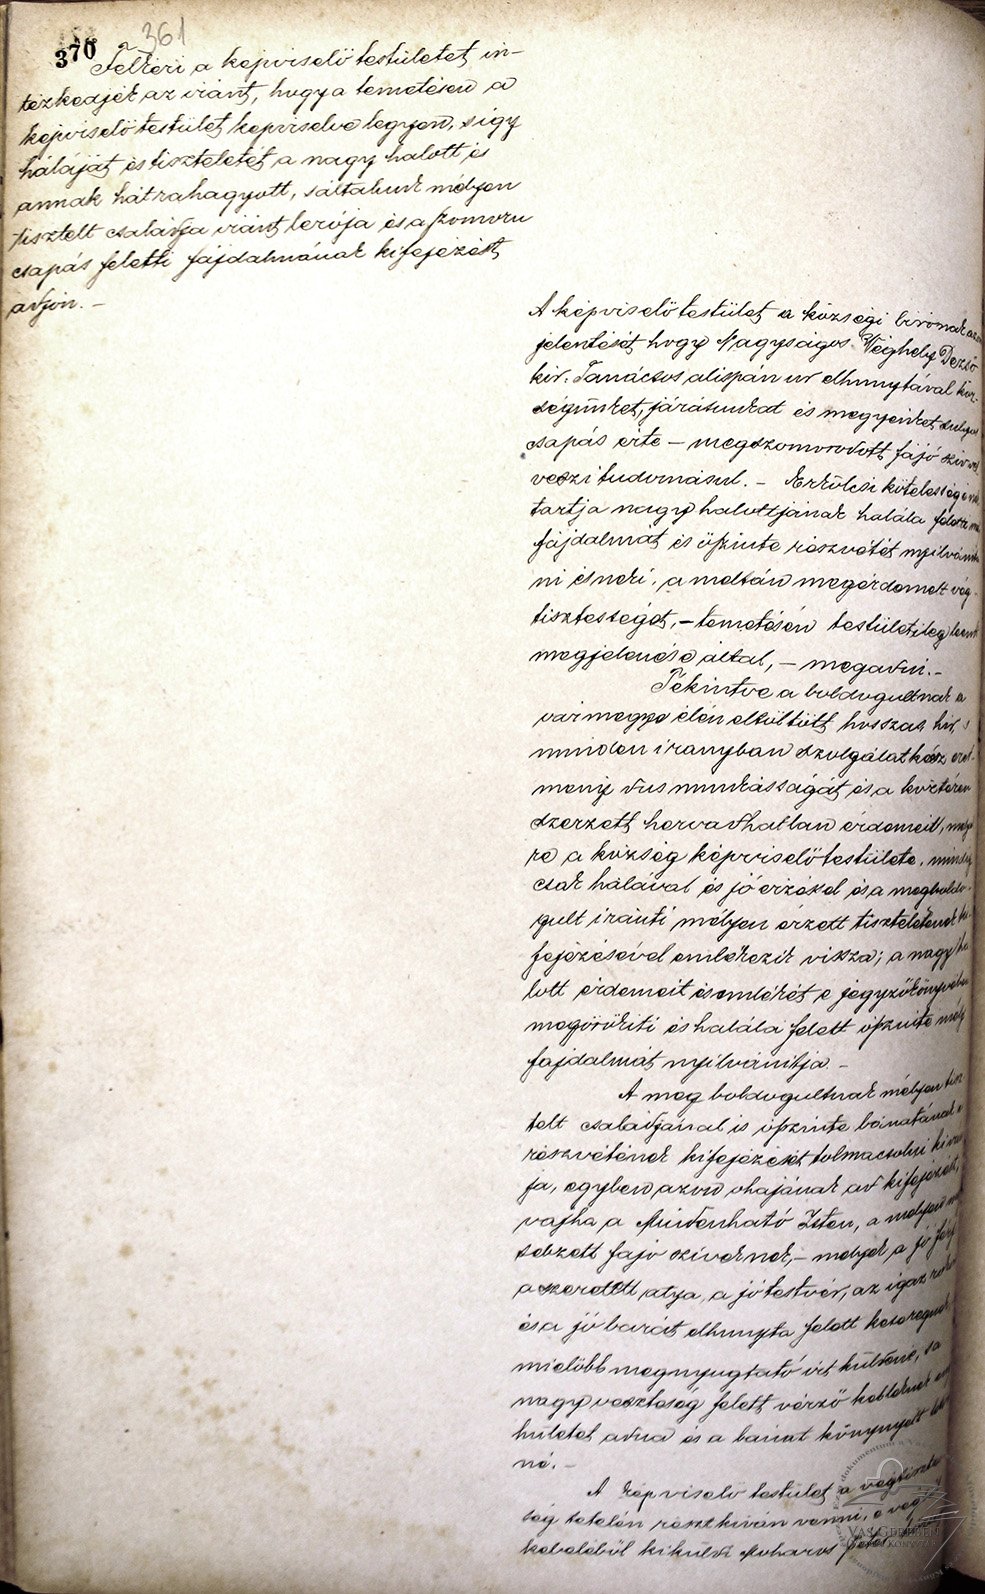 370
361
Felkéri a képviselő testületet in-
tézkedjék az iránt, hogy a temetésen a
képviselő testület képviselve legyen, s így
háláját és tiszteletét a nagy halott és
annak hátrahagyott, s általunk mélyen
tisztelt családja iránt lerója és a szomoru
csapás feletti fájdalmának kifejezést
adjon. –
A képviselő testület a községi birónak
jelentését hogy Nagyságos Véghely Dezső
kir. Tanácsos alispán ur elhunytával köz-
ségünket, járásunkat és megyénket sulyos
csapás érte – megszomorodott fájó szivvel
veszi tudomásul. – Erkölcsi kötelességének
tartja nagy halottjának halála feletti
fájdalmát és őszinte részvétét nyilváníta-
ni és neki, a méltán megérdemelt vég-
tisztességet, – temetésén testületileg
megjelenése által, – megadni. –
Tekintve a boldogultnak a
vármegye élén eltöltött hosszas hű, s
minden irányban szolgálatkész ered-
mény dus munkásságát és a köztéren
szerzett hervadhatlan érdemeit, melyek-
re a község képviselő testülete, mindég
csak hálával és jó érzéssel és a megboldo-
gult iránti mélyen érzett tiszteletének ki-
fejezésével emlékezik vissza; a nagy ha-
lott érdemeit és emlékét e jegyzőkönyvében
megörökiti és halála felett őszinte mély
fájdalmát nyilvánitja –
A meg boldogultnak mélyen tisz
telt családjánal is őszinte bánatának s
részvétének kifejezését tolmácsolni kiván-
ja, egyben azon ohajának ad kifejezést,
vajha a Mindenható Isten, a mélyen
sebzett fájó sziveknek, – melyek a jó férj
a szeretett atya, a jó testvér, az igaz rokon
és a jó barát elhunyta felett keseregnek
mielőbb megnyugtató irt küldene, s a
nagy veszteség felett vérző kebleknek
hületet adna és a bánat könnyeit
né. –
A képviselő testület a végtisztes
ség tételén részt kíván venni, e végből
kebeléből kiküldi Moharos Péter
VAS GEREBEN